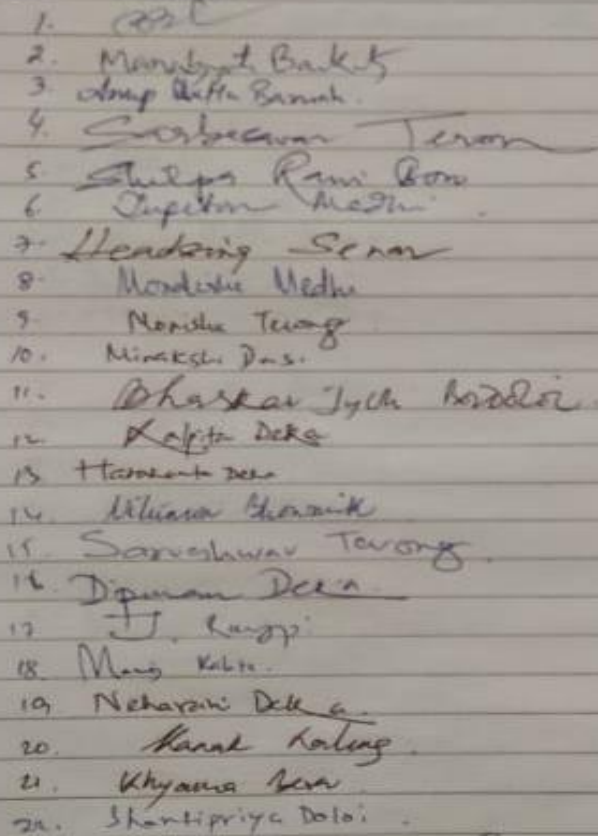 1.
2. Manabjyoti
3. Anup Dutta Baruah.
4. Sarbeswar Teron
5. Shilpa Rani Boro
6. Jupitor Medhi
7. Headsing Senar
8. Mondisha Medhi
9. Monisha Terong
10. Minakshi Das.
11. Bhaskar Jyoti Bordoloi
12. Kalpita Deka
13 Harakanta Deka
14. Bhowmik
15. Sarveshwar Terong.
16. Dipuman Deka
17 J. Rongpi
18. Kalita.
19 Neharani Deka.
20. Kanak
21. Khyama
22. Shantipriya Doloi.